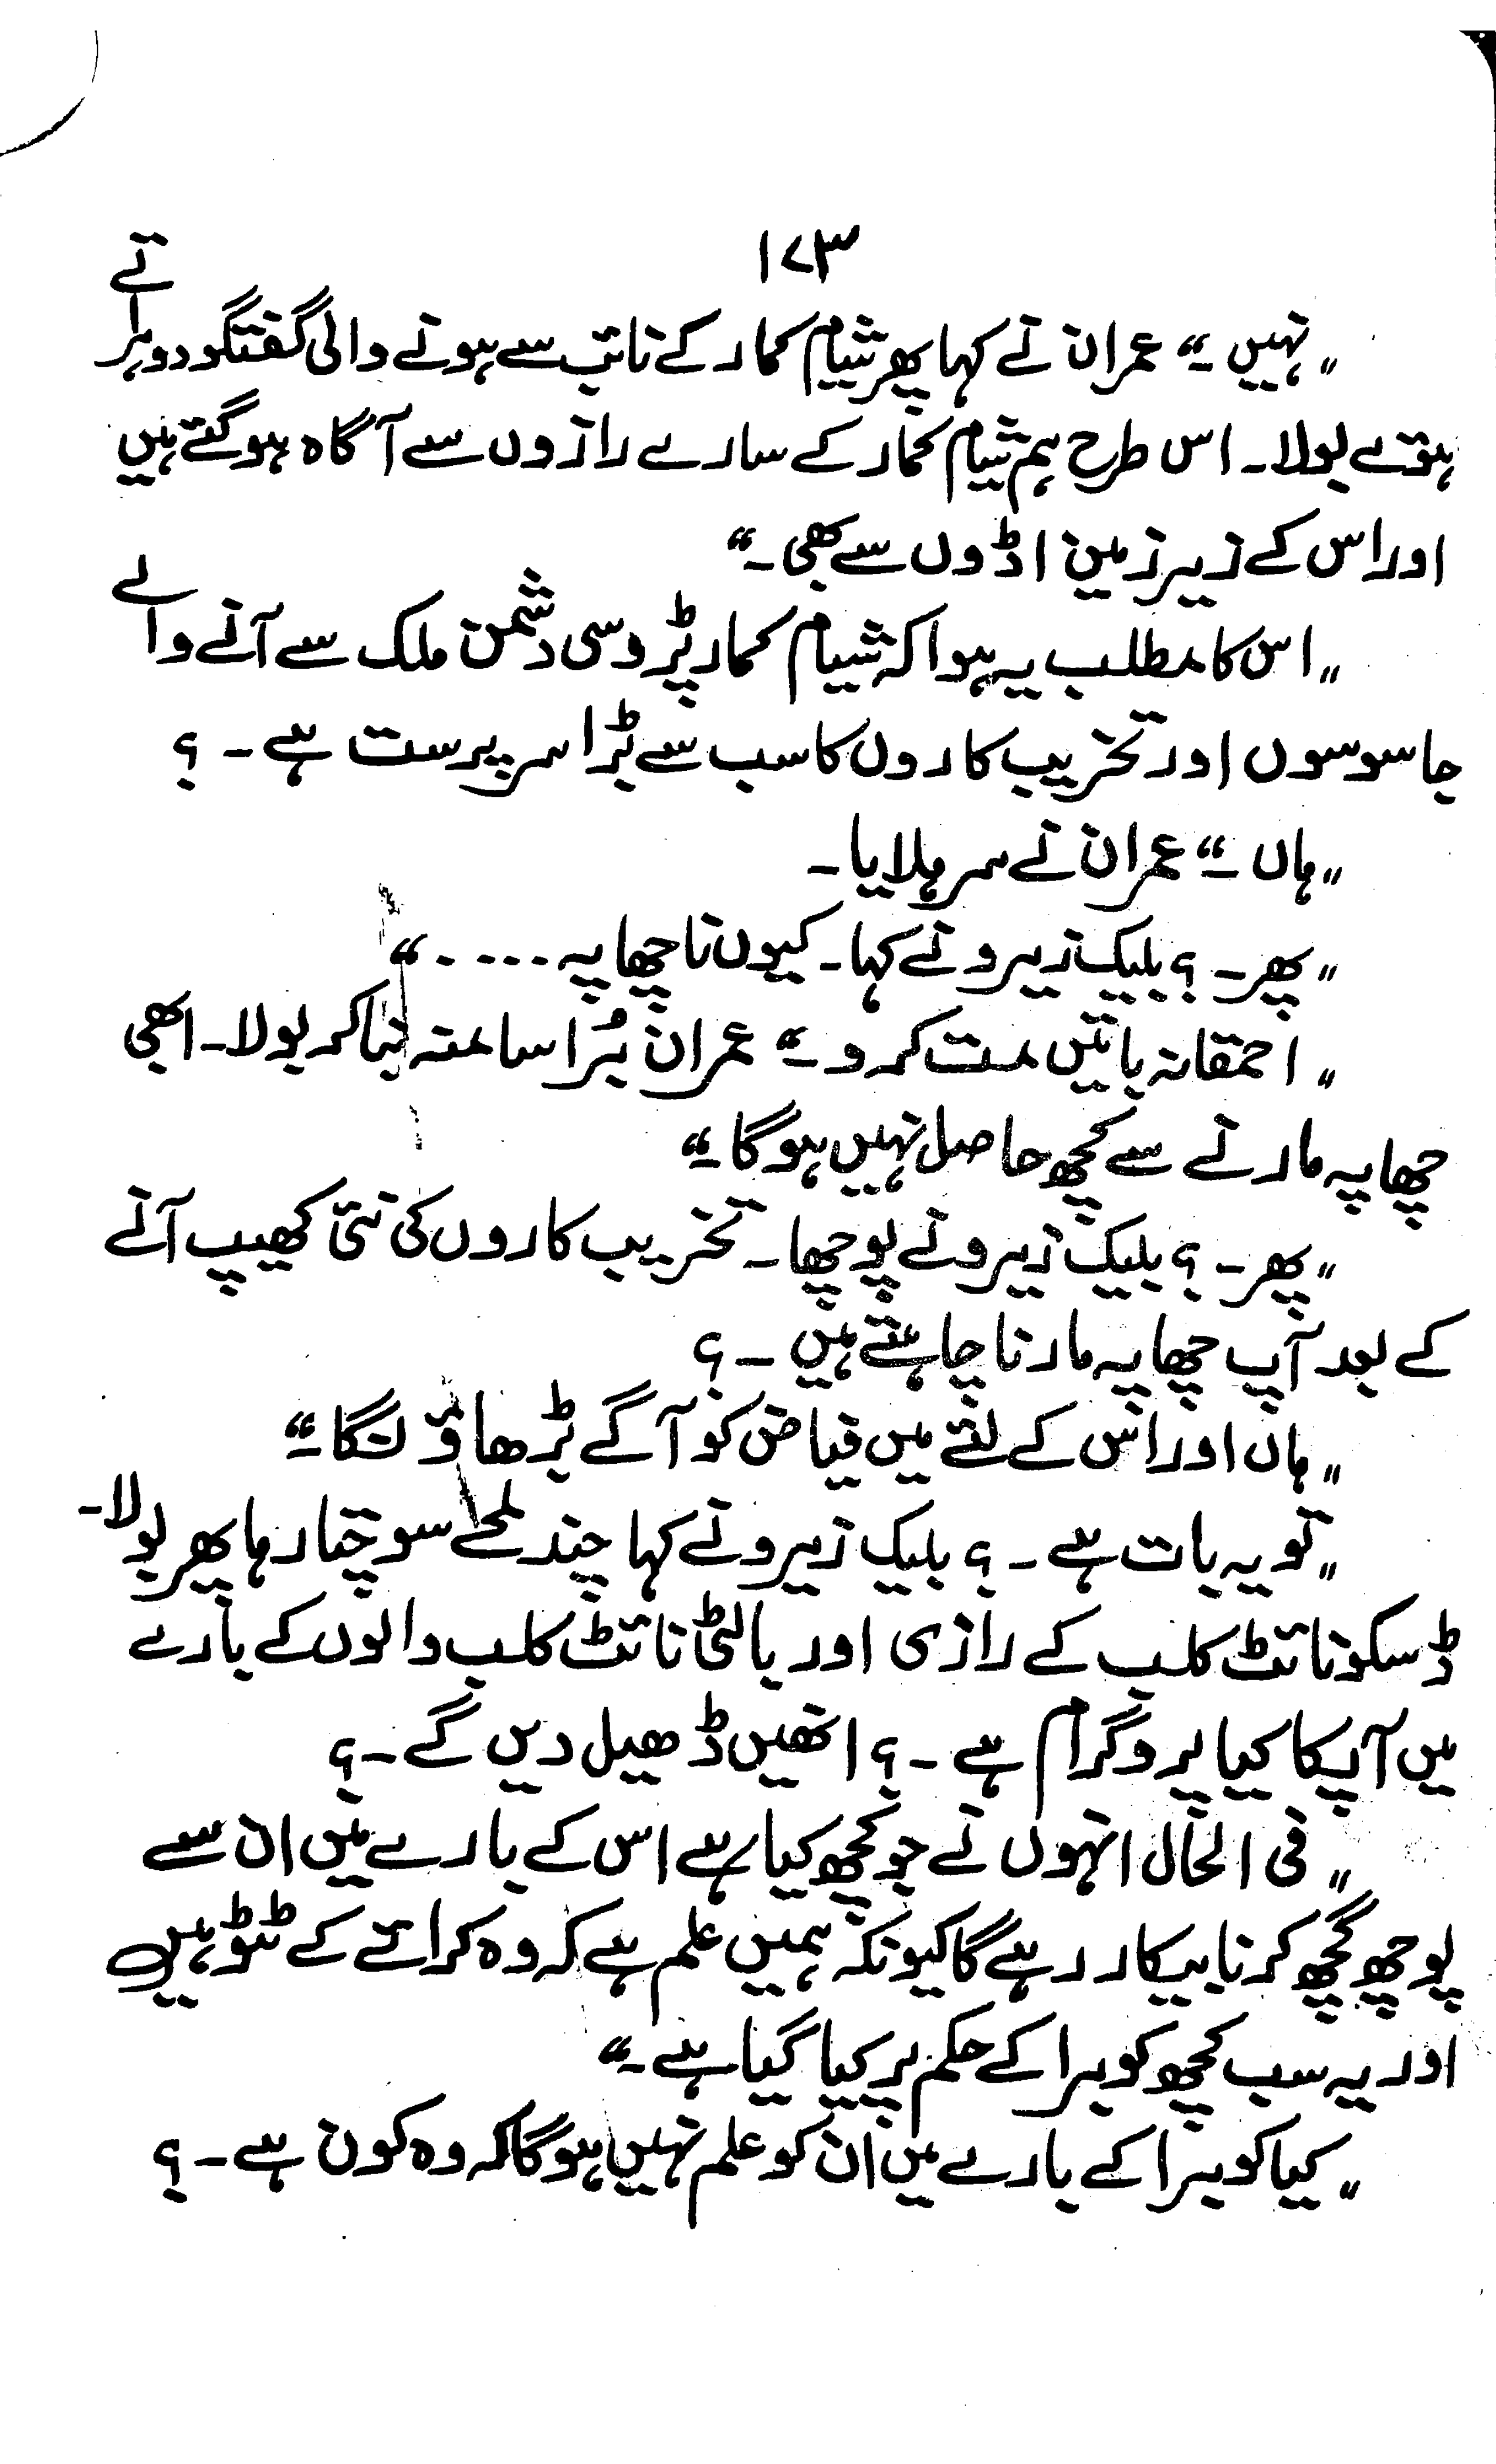 ۱۷۳
"نہیں۔" عمران نے کہا پھر شیام کمار کے نائب سے ہونے والی گفتگو دوہراتے
ہوئے بولا۔ اس طرح ہم شیام کمار کے سارے رازوں سے آگاہ ہو گئے ہیں
اور اس کے زیر زمین اڈوں سے بھی۔"
"اس کا مطلب یہ ہوا کہ شیام کمار پڑوسی دشمن ملک سے آنے والے
جاسوسوں اور تخریب کاروں کا سب سے بڑا سرپرست ہے۔؟
"ہاں۔" عمران نے سر ہلایا۔
"پھر۔؟ بلیک زیرو نے کہا۔ کیوں نا چھاپہ ....."
"احمقانہ باتیں مت کرو۔" عمران بُرا سا منہ بنا کر بولا۔ ابھی
چھاپہ مارنے سے کچھ حاصل نہیں ہوگا۔"
"پھر۔؟ بلیک زیرو نے پوچھا۔ تخریب کاروں کی نئی کھیپ آنے
کے بعد آپ چھاپہ مارنا چاہتے ہیں۔؟
"ہاں اور اس کے لئے میں فیاض کو آگے بڑھاؤں گا۔"
"تو یہ بات ہے۔؟ بلیک زیرو نے کہا چند لمحے سوچتا رہا پھر بولا۔
ڈسکو نائٹ کلب کے رازی اور بالٹی نائٹ کلب والوں کے بارے
میں آپکا کیا پروگرام ہے۔؟ انھیں ڈھیل دیں گے۔؟
"فی الحال انہوں نے جو کچھ کیا ہے اس کے بارے میں ان سے
پوچھ گچھ کرنا بیکار رہے گا کیونکہ ہمیں علم ہے کہ وہ کرائے کے ٹٹو ہیں
اور یہ سب کچھ کوبرا کے حکم پر کیا گیا ہے۔"
"کیا کوبرا کے بارے میں ان کو علم نہیں ہوگا کہ وہ کون ہے۔؟